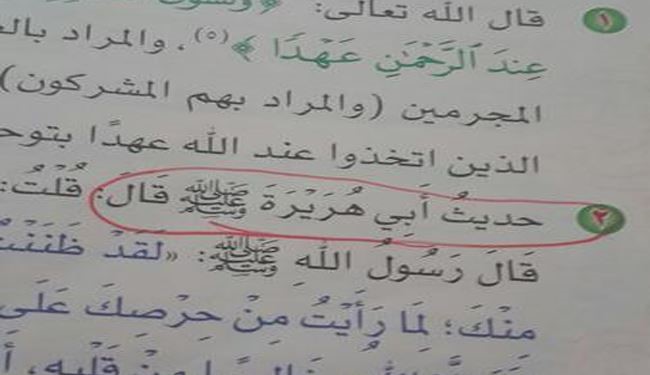 ١ قال الله تعالى:
عِندَ ٱلرَّحْمَٰنِ عَهْدًا ﴾(٥)، والمراد
المجرمين (والمراد بهم المشركون)
الذين اتخذوا عند الله عهدًا
٢ حديثُ أَبِي هُرَيْرَةَ ﷺ قَالَ: قُلْتُ:
قَالَ رَسُولُ اللهِ ﷺ: «لَقَدْ ظَنَنْتُ
مِنْكَ؛ لِمَا رَأَيْتُ مِنْ حِرْصِكَ عَلَى
مِنْ قَلْبِهِ،